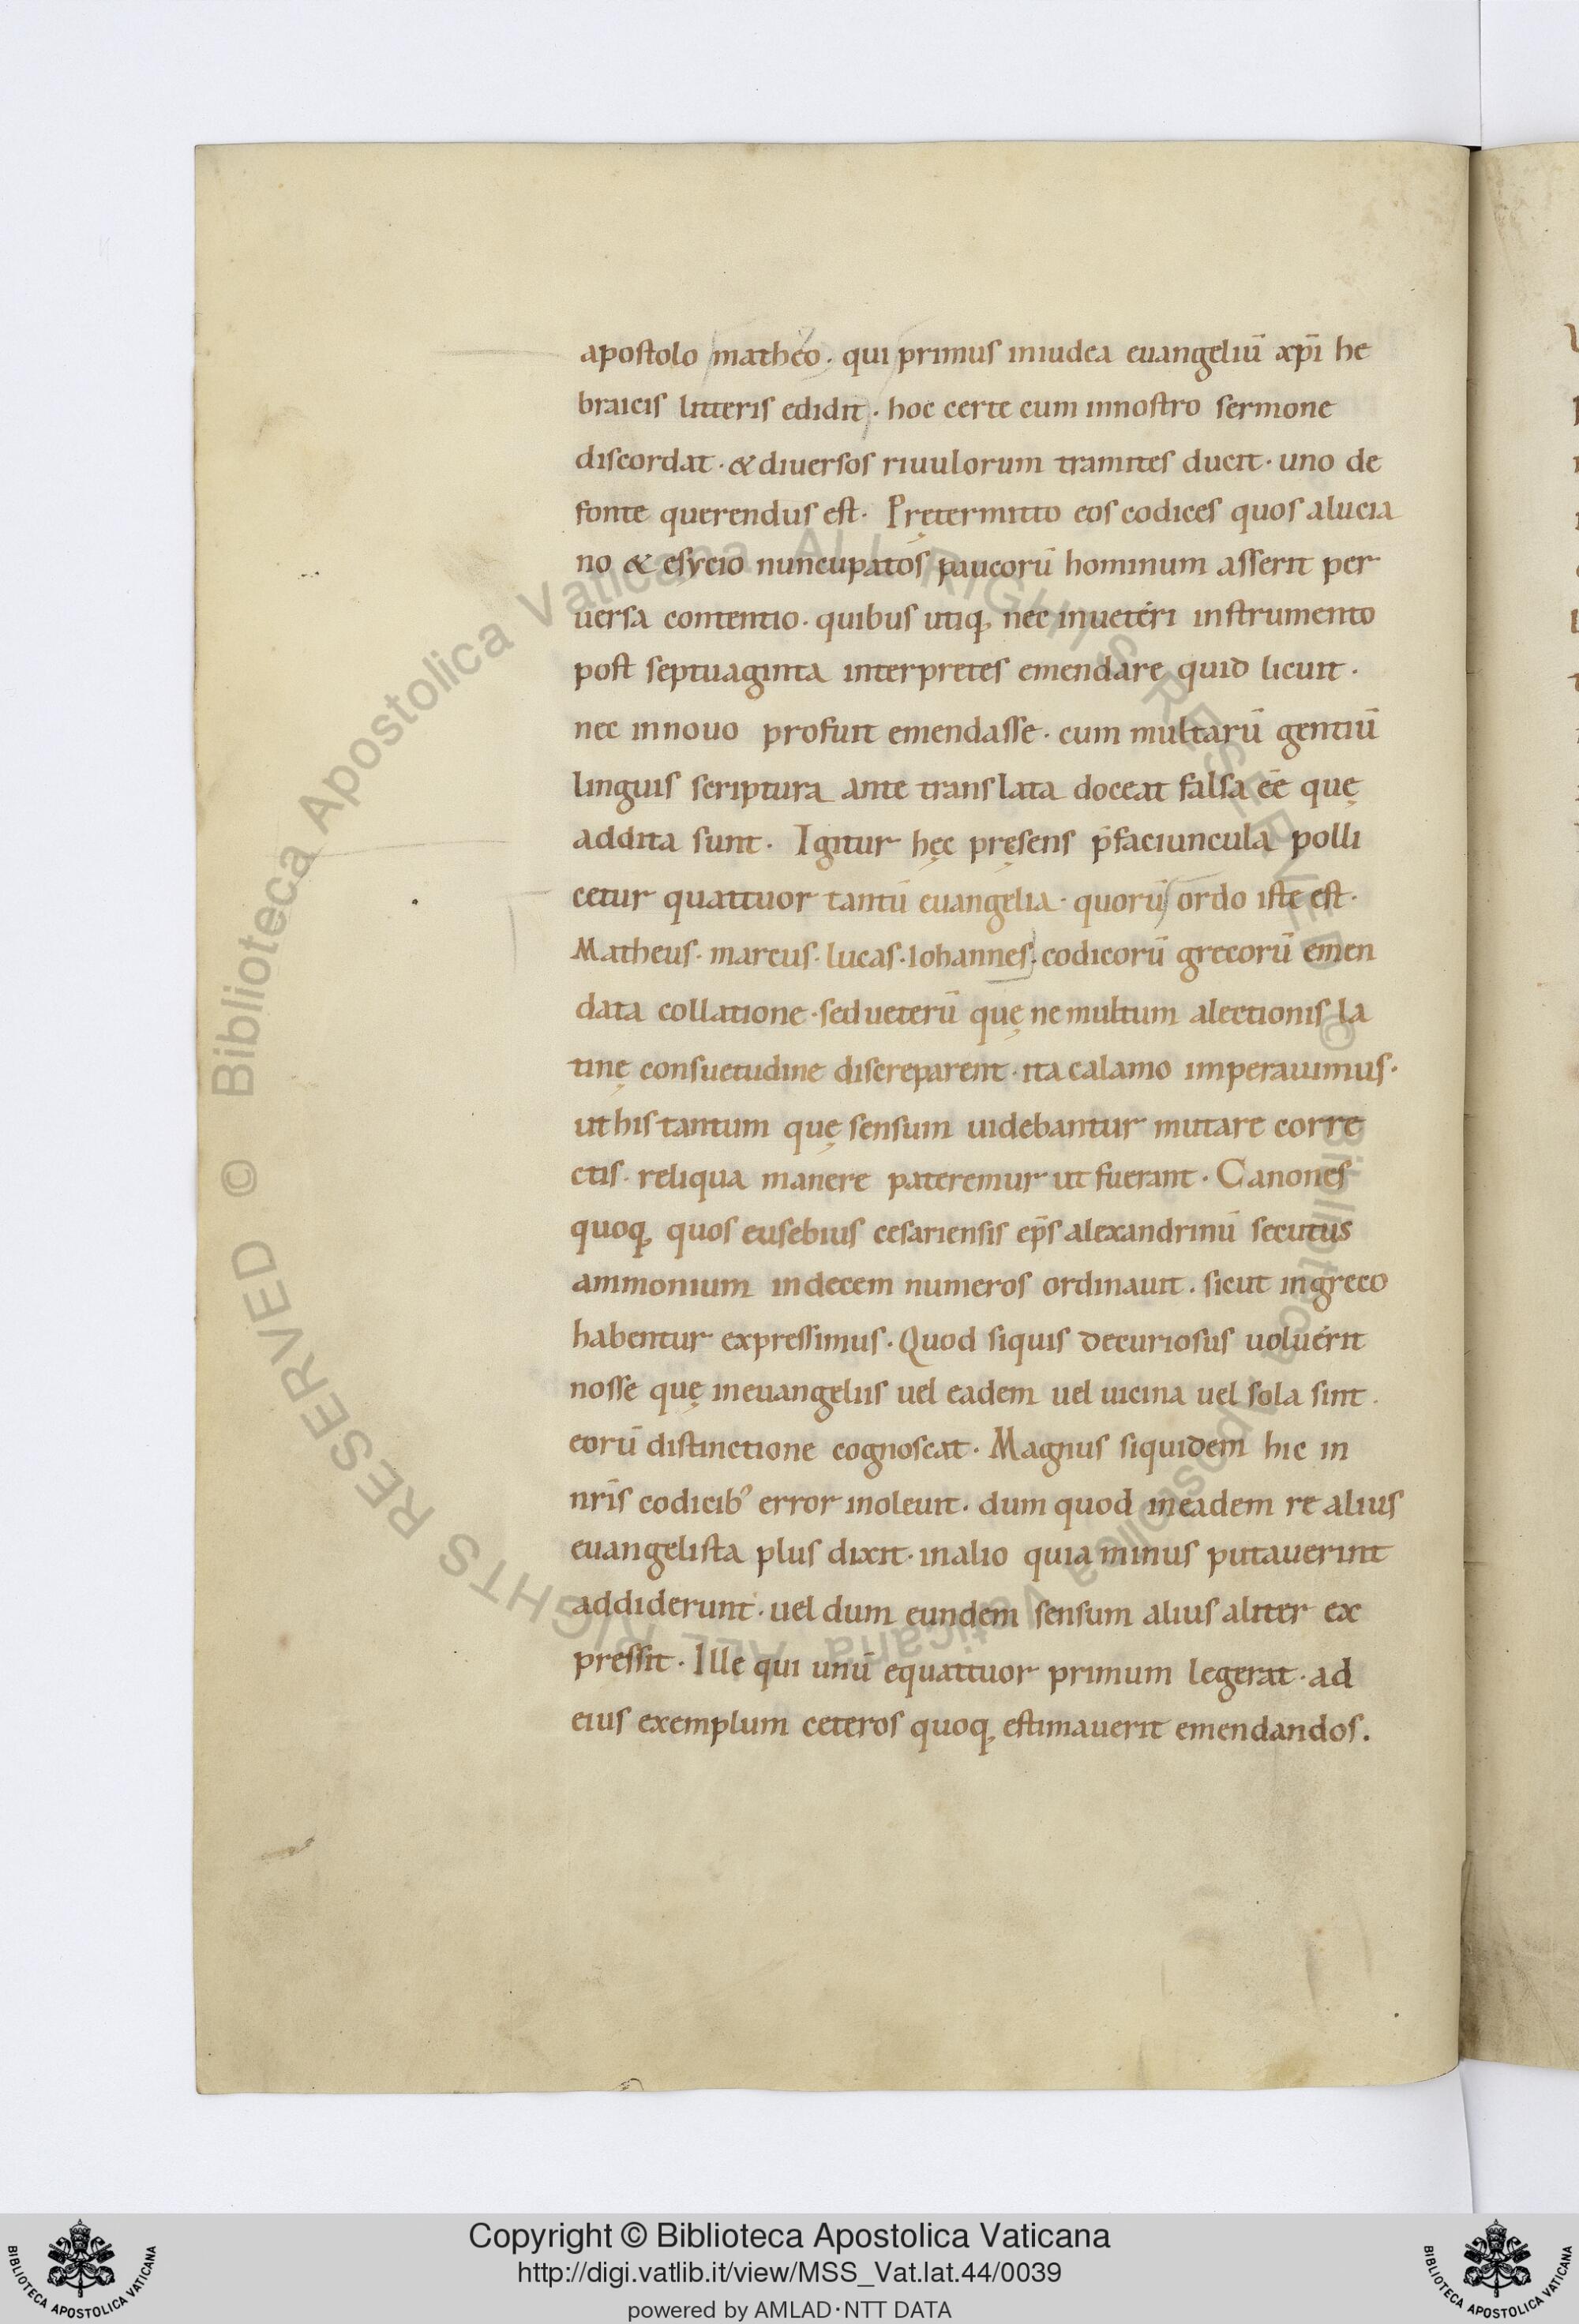 apostolo matheo · qui primus iniudea euangeliū xp̄i he
braicis litteris edidit · hoc certe cum innostro sermone
discordat · & diuersos riuulorum tramites ducit · uno de
fonte querendus est · Pretęrmitto eos codices quos alucia
no & esycio nuncupatos paucorū hominum asserit per
uersa contentio · quibus utiq; nec inueteri instrumento
post septuaginta interpretes emendare quid licuit ·
nec innouo profuit emendasse · cum multarū gentiū
linguis scriptura ante translata doceat falsa eē̄ quę
addita sunt · Igitur hęc pręsens p̄faciuncula polli
cetur quattuor tantū euangelia · quorū ordo iste est ·
Matheus · marcus · lucas · Iohannes · codicorū grecorū emen
data collatione · sed ueterū quę ne multum alectionis la
tinę consuetudine discreparent · ita calamo imperauimus ·
ut his tantum quę sensum uidebantur mutare corre
ctis · reliqua manere pateremur ut fuerant · Canones
quoq; quos eusebius cesariensis ep̄s alexandrinū secutus
ammonium indecem numeros ordinauit · sicut ingreco
habentur expressimus · Quod siquis decuriosus uoluerit
nosse quę ineuangeliis uel eadem uel uicina uel sola sint ·
eorū distinctione cognoscat · Magnus siquidem hic in
nr̄is codicib' error inoleuit · dum quod ineadem re alius
euangelista plus dixit · inalio quia minus putauerint
addiderunt · uel dum eundem sensum alius aliter ex
pressit · Ille qui unū equattuor primum legerat · ad
eius exemplum ceteros quoq; estimauerit emendandos .
Biblioteca Apostolica Vaticana ALL RIGHTS RESERVED ©
Biblioteca Apostolica Vaticana ALL RIGHTS RESERVED ©
Copyright © Biblioteca Apostolica Vaticana
http://digi.vatlib.it/view/MSS_Vat.lat.44/0039
powered by AMLAD·NTT DATA
BIBLIOTECA APOSTOLICA VATICANA
BIBLIOTECA APOSTOLICA VATICANA